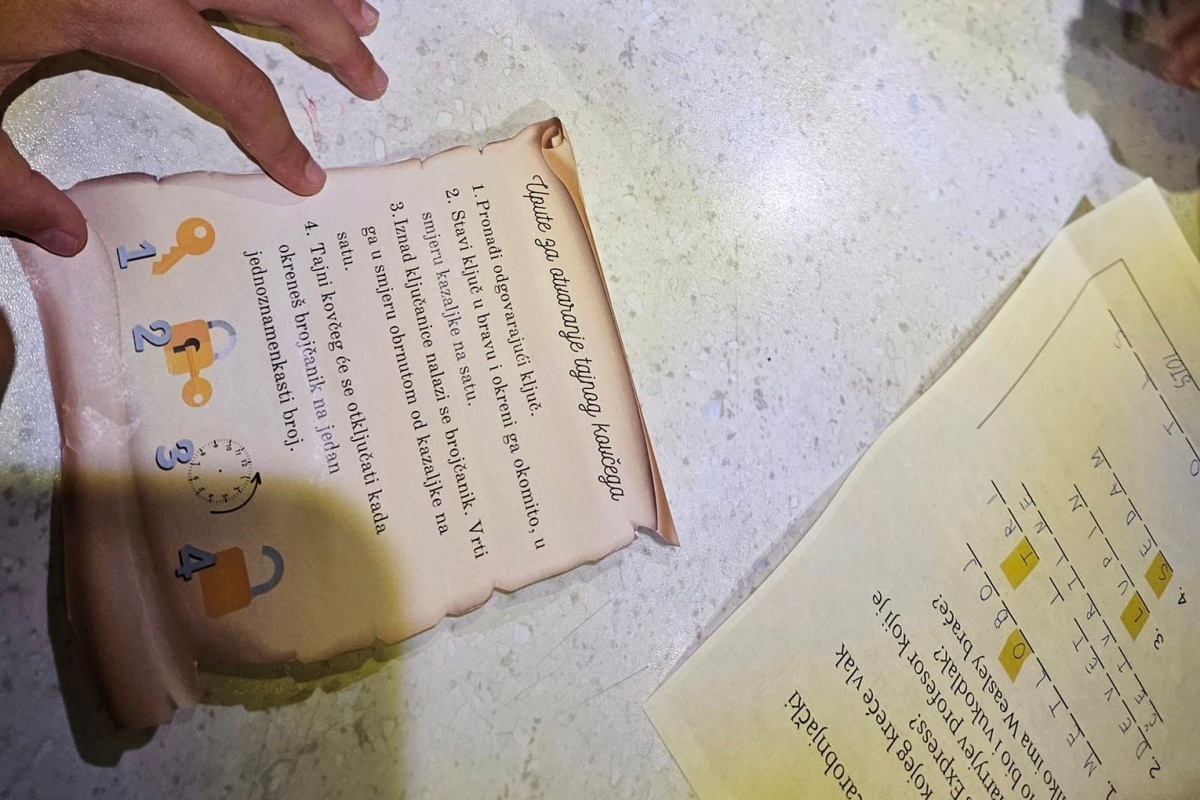 Upute za otvaranje tajnog kovčega
1.Pronađi odgovarajući ključ.
2. Stavi ključ u bravu i okreni ga okomito, u
smjeru kazaljke na satu.
3.Iznad ključanice nalazi se brojčanik. Vrti
ga u smjeru obrnutom od kazaljke na
satu.
4. Tajni kovčeg će se otključati kada
okreneš brojčanik na jedan
jednoznamenkasti broj.
1 2 3 4
čarobnjački
kojeg kreće vlak
Express?
Harryjev profesor koji je
bio i vukodlak?
ima Weasley braće?
1. M E T L O B O J
2. D E V E T I T R I
Č E T V R T I N E
3. L U P I N
4. S E D A M
S T O L
STOL